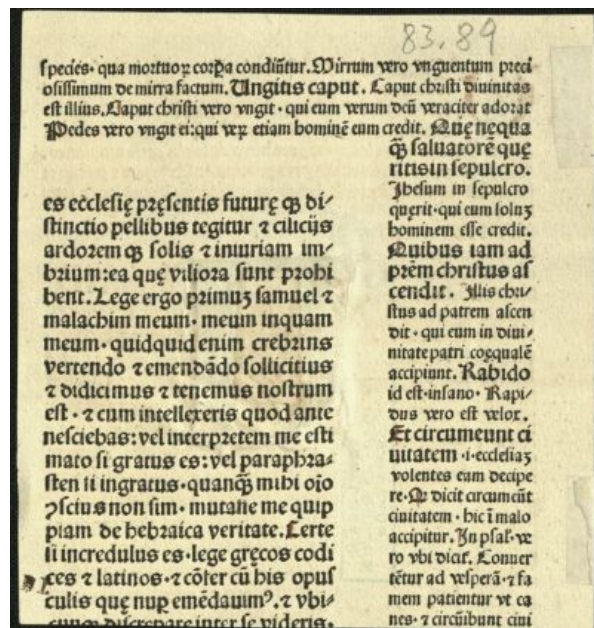 83.89
species· qua mortuoꝝ corꝑa condiũtur. Mirrum vero vnguentum preci
osissimum de mirra factum. Ungitis caput. Caput christi diuinitas
est illius. Caput christi vero vngit· qui eum verum deũ veraciter adorat
Pedes vero vngit ei: qui veꝝ etiam hominẽ eum credit. Quę nequa
ꝙ̃ saluatorẽ quę
ritis in sepulcro.
Jhesum in sepulcro
querit· qui eum solum
hominem esse credit.
Quibus iam ad
prẽm christus as
cendit. Jllis chri⸗
stus ad patrem ascen
dit· qui eum in diui⸗
nitate patri coęqualẽ
accipiunt. Rabido
id est· insano· Rapi⸗
dus vero est velox.
Et circumeunt ci
uitatem ·i· ecclesiaꝫ
volentes eam decipe
re· dicit circumeũt
ciuitatem· hic ĩ malo
accipitur. Jn psal· ve
ro vbi dicit. Conuer
tẽtur ad vesperã· ⁊ fa
mem patientur vt ca
nes· ⁊ circũibunt ciui
es ecclesię pręsentis futurę ꝙ di⸗
stinctio pellibus tegitur ⁊ cilicijs
ardorem ꝙ solis ⁊ iniuriam im⸗
brium: ea quę viliora sunt prohi
bent. Lege ergo primuꝫ samuel ⁊
malachim meum· meum inquam
meum· quidquid enim crebrius
vertendo ⁊ emendãdo sollicitius
⁊ didicimus ⁊ tenemus nostrum
est· ⁊ cum intellexeris quod ante
nesciebas: vel interpretem me esti
mato si gratus es: vel paraphra⸗
sten si ingratus· quanꝙ̃ mihi oĩo
ↄscius non sim· mutasse me quip
piam de hebraica veritate. Certe
si incredulus es· lege gręcos codi
ces ⁊ latinos· ⁊ cõfer cũ his opus
culis quę nuꝑ emẽdauimꝰ. ⁊ vbi⸗
cunꝙ discrepare inter se videris·